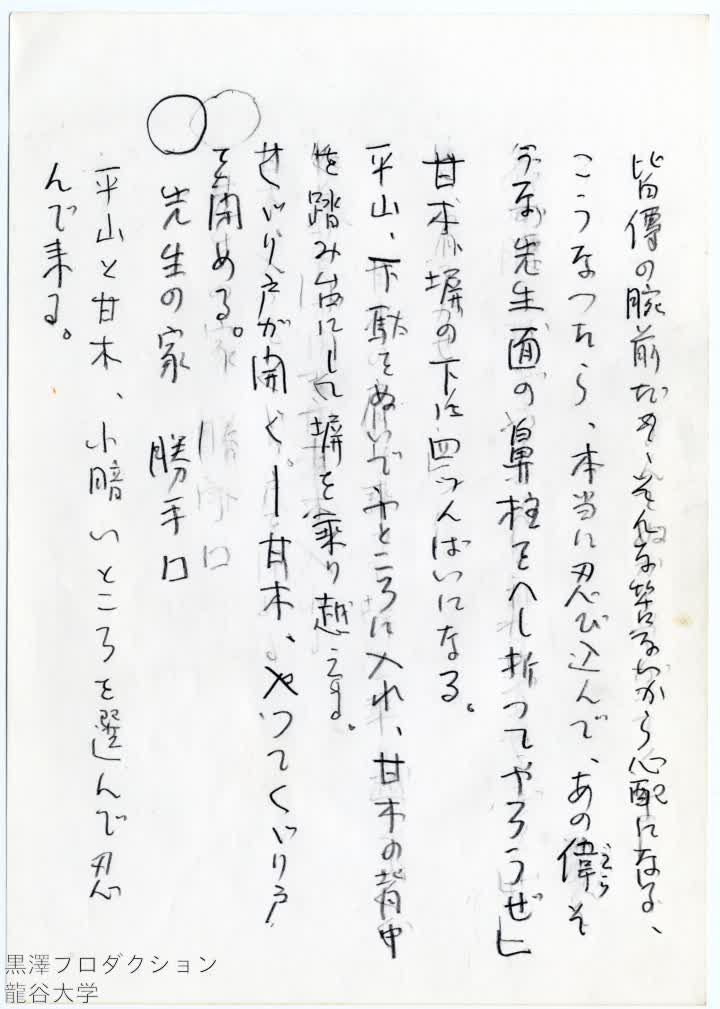 皆僧の腕前だめ、そんな筈ないから心配になる、
こうなつたら、本当に忍び込んで、あの偉そ
うな先生面の鼻柱をへし折つてやろうぜ」
甘木、塀の下に四つんばいになる。
平山、下駄をぬいでふところに入れ、甘木の背中
を踏み台にして塀を乗り越える。
くぐり戸が開く――甘木、入つてくぐり戸
を閉める。
○ 先生の家 勝手口
平山と甘木、小暗いところを選んで忍
んで来る。
黒澤プロダクション
龍谷大学